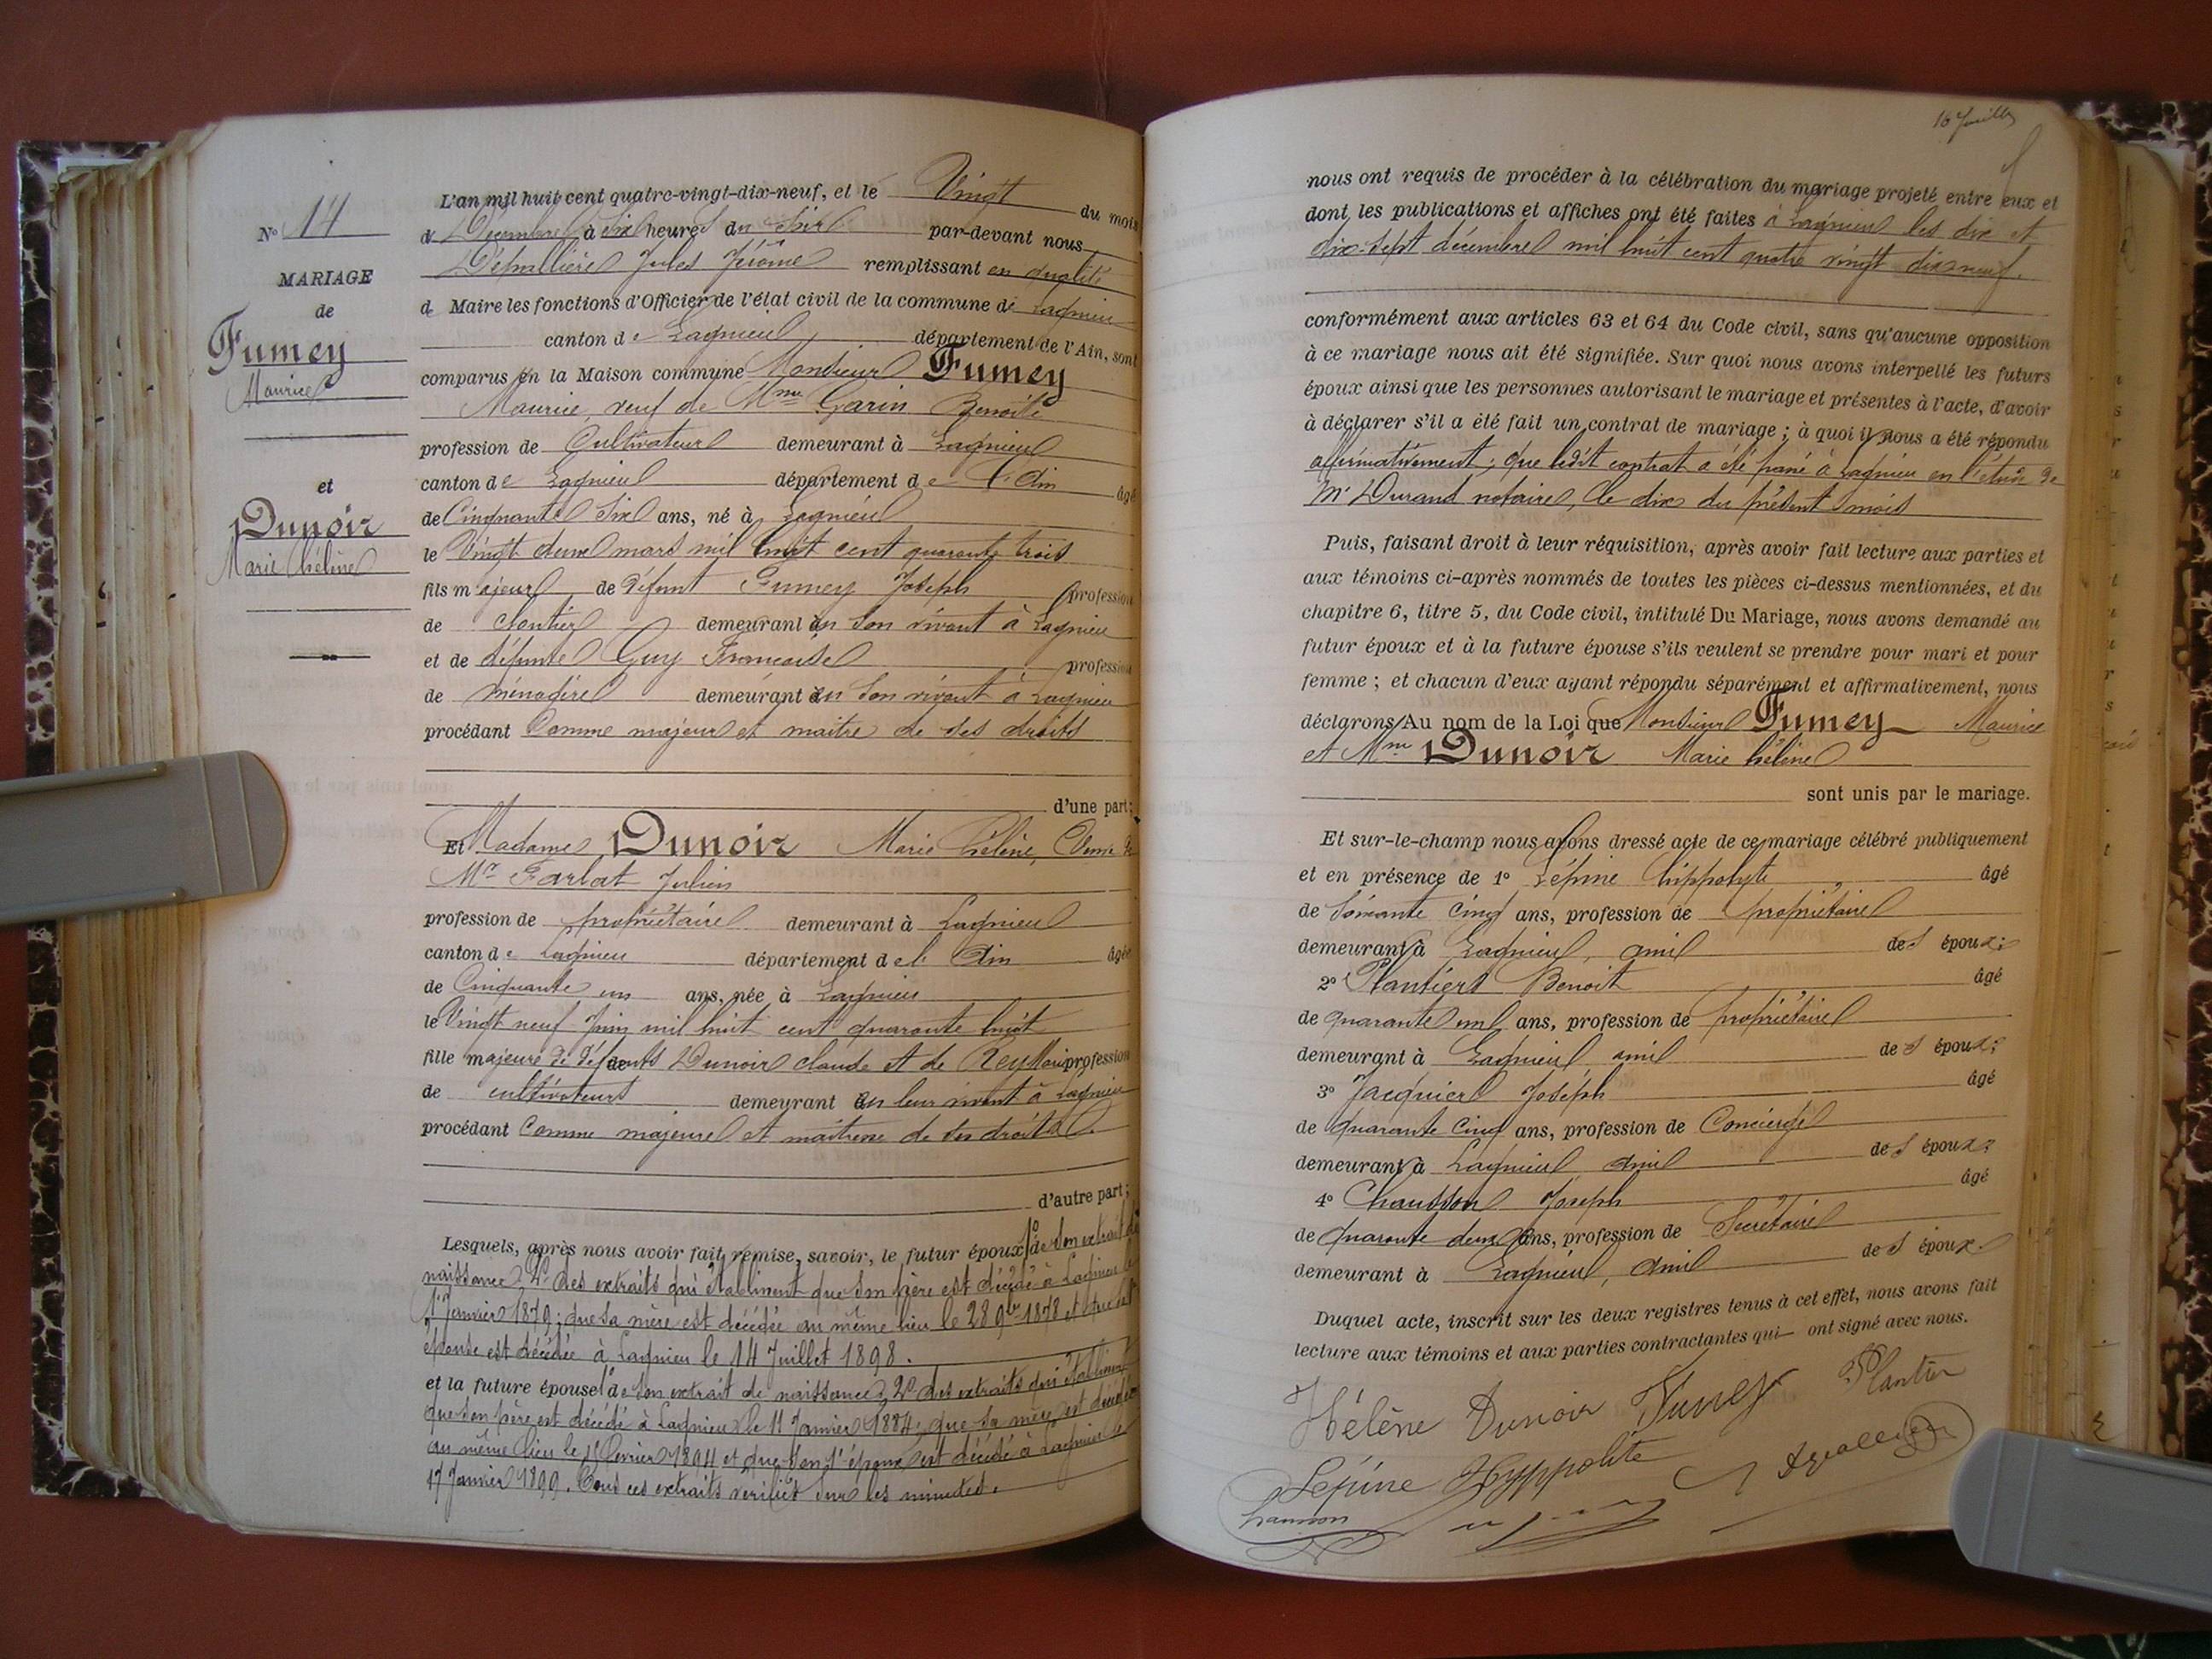 N° 14
MARIAGE
de
Fumey
Maurice
et
Dunoir
Marie hélène
L'an mil huit cent quatre-vingt-dix-neuf, et le Vingt du mois
de Décembre à six heures du Soir par-devant nous
Jules Jérôme remplissant en qualité
de Maire les fonctions d'Officier de l'état civil de la commune de Lagnieu
canton de Lagnieu département de l'Ain, sont
comparus en la Maison commune Monsieur Fumey
Maurice, veuf de Mme Garin Benoîte
profession de Cultivateur demeurant à Lagnieu
canton de Lagnieu département de l'Ain âgé
de Cinquante Six ans, né à Lagnieu
le Vingt deux mars mil huit cent quarante trois
fils majeur de défunt Fumey Joseph profession
de cloutier demeurant en son vivant à Lagnieu
et de défunte Guy Françoise profession
de ménagère demeurant en son vivant à Lagnieu
procédant Comme majeur et maître de ses droits
d'une part;
Et Madame Dunoir Marie hélène, Veuve de
Mr Farlat Julien
profession de propriétaire demeurant à Lagnieu
canton de Lagnieu département de l'Ain âgée
de Cinquante un ans, née à Lagnieu
le Vingt neuf Juin mil huit cent quarante huit
fille majeure de défunts Dunoir claude et de Rey Marie profession
de cultivateurs demeurant en leur vivant à Lagnieu
procédant Comme majeure et maitresse de ses droits.
d'autre part;
Lesquels, après nous avoir fait remise, savoir, le futur époux 1° de son extrait de
naissance 2° des extraits qui établissent que son père est décédé à Lagnieu le
1er Janvier 1879; que sa mère est décédée au même lieu le 28 9bre 1878 et que son
épouse est décédée à Lagnieu le 14 Juillet 1898.
et la future épouse 1° de son extrait de naissance, 2° des extraits qui établissent
que son père est décédé à Lagnieu le 11 Janvier 1884; que sa mère est décédée
au même lieu le 1er février 1894 et que son 1er époux est décédé à Lagnieu le
17 Janvier 1899. Tous ces extraits vérifiés sur les minutes.
16 Juillet
nous ont requis de procéder à la célébration du mariage projeté entre eux et
dont les publications et affiches ont été faites à Lagnieu les dix et
dix-sept décembre mil huit cent quatre vingt dix neuf.
conformément aux articles 63 et 64 du Code civil, sans qu'aucune opposition
à ce mariage nous ait été signifiée. Sur quoi nous avons interpellé les futurs
époux ainsi que les personnes autorisant le mariage et présentes à l'acte, d'avoir
à déclarer s'il a été fait un contrat de mariage; à quoi il nous a été répondu
affirmativement; que ledit contrat a été passé à Lagnieu en l'étude de
Me Durand notaire, le dix du présent mois
Puis, faisant droit à leur réquisition, après avoir fait lecture aux parties et
aux témoins ci-après nommés de toutes les pièces ci-dessus mentionnées, et du
chapitre 6, titre 5, du Code civil, intitulé Du Mariage, nous avons demandé au
futur époux et à la future épouse s'ils veulent se prendre pour mari et pour
femme; et chacun d'eux ayant répondu séparément et affirmativement, nous
déclarons Au nom de la Loi que Monsieur Fumey Maurice
et Mme Dunoir Marie hélène
sont unis par le mariage.
Et sur-le-champ nous avons dressé acte de ce mariage célébré publiquement
et en présence de 1° Lépine hippolyte âgé
de soixante cinq ans, profession de propriétaire
demeurant à Lagnieu, ami des époux;
2° Plantiers Benoit âgé
de quarante un ans, profession de propriétaire
demeurant à Lagnieu, ami des époux;
3° Jacquier Joseph âgé
de quarante cinq ans, profession de Concierge
demeurant à Lagnieu ami des époux;
4° Chausson Joseph âgé
de quarante deux ans, profession de Secrétaire
demeurant à Lagnieu, ami des époux.
Duquel acte, inscrit sur les deux registres tenus à cet effet, nous avons fait
lecture aux témoins et aux parties contractantes qui ont signé avec nous.
Hélène Dunoir Fumey Plantier
Lépine Hyppolite
Chausson